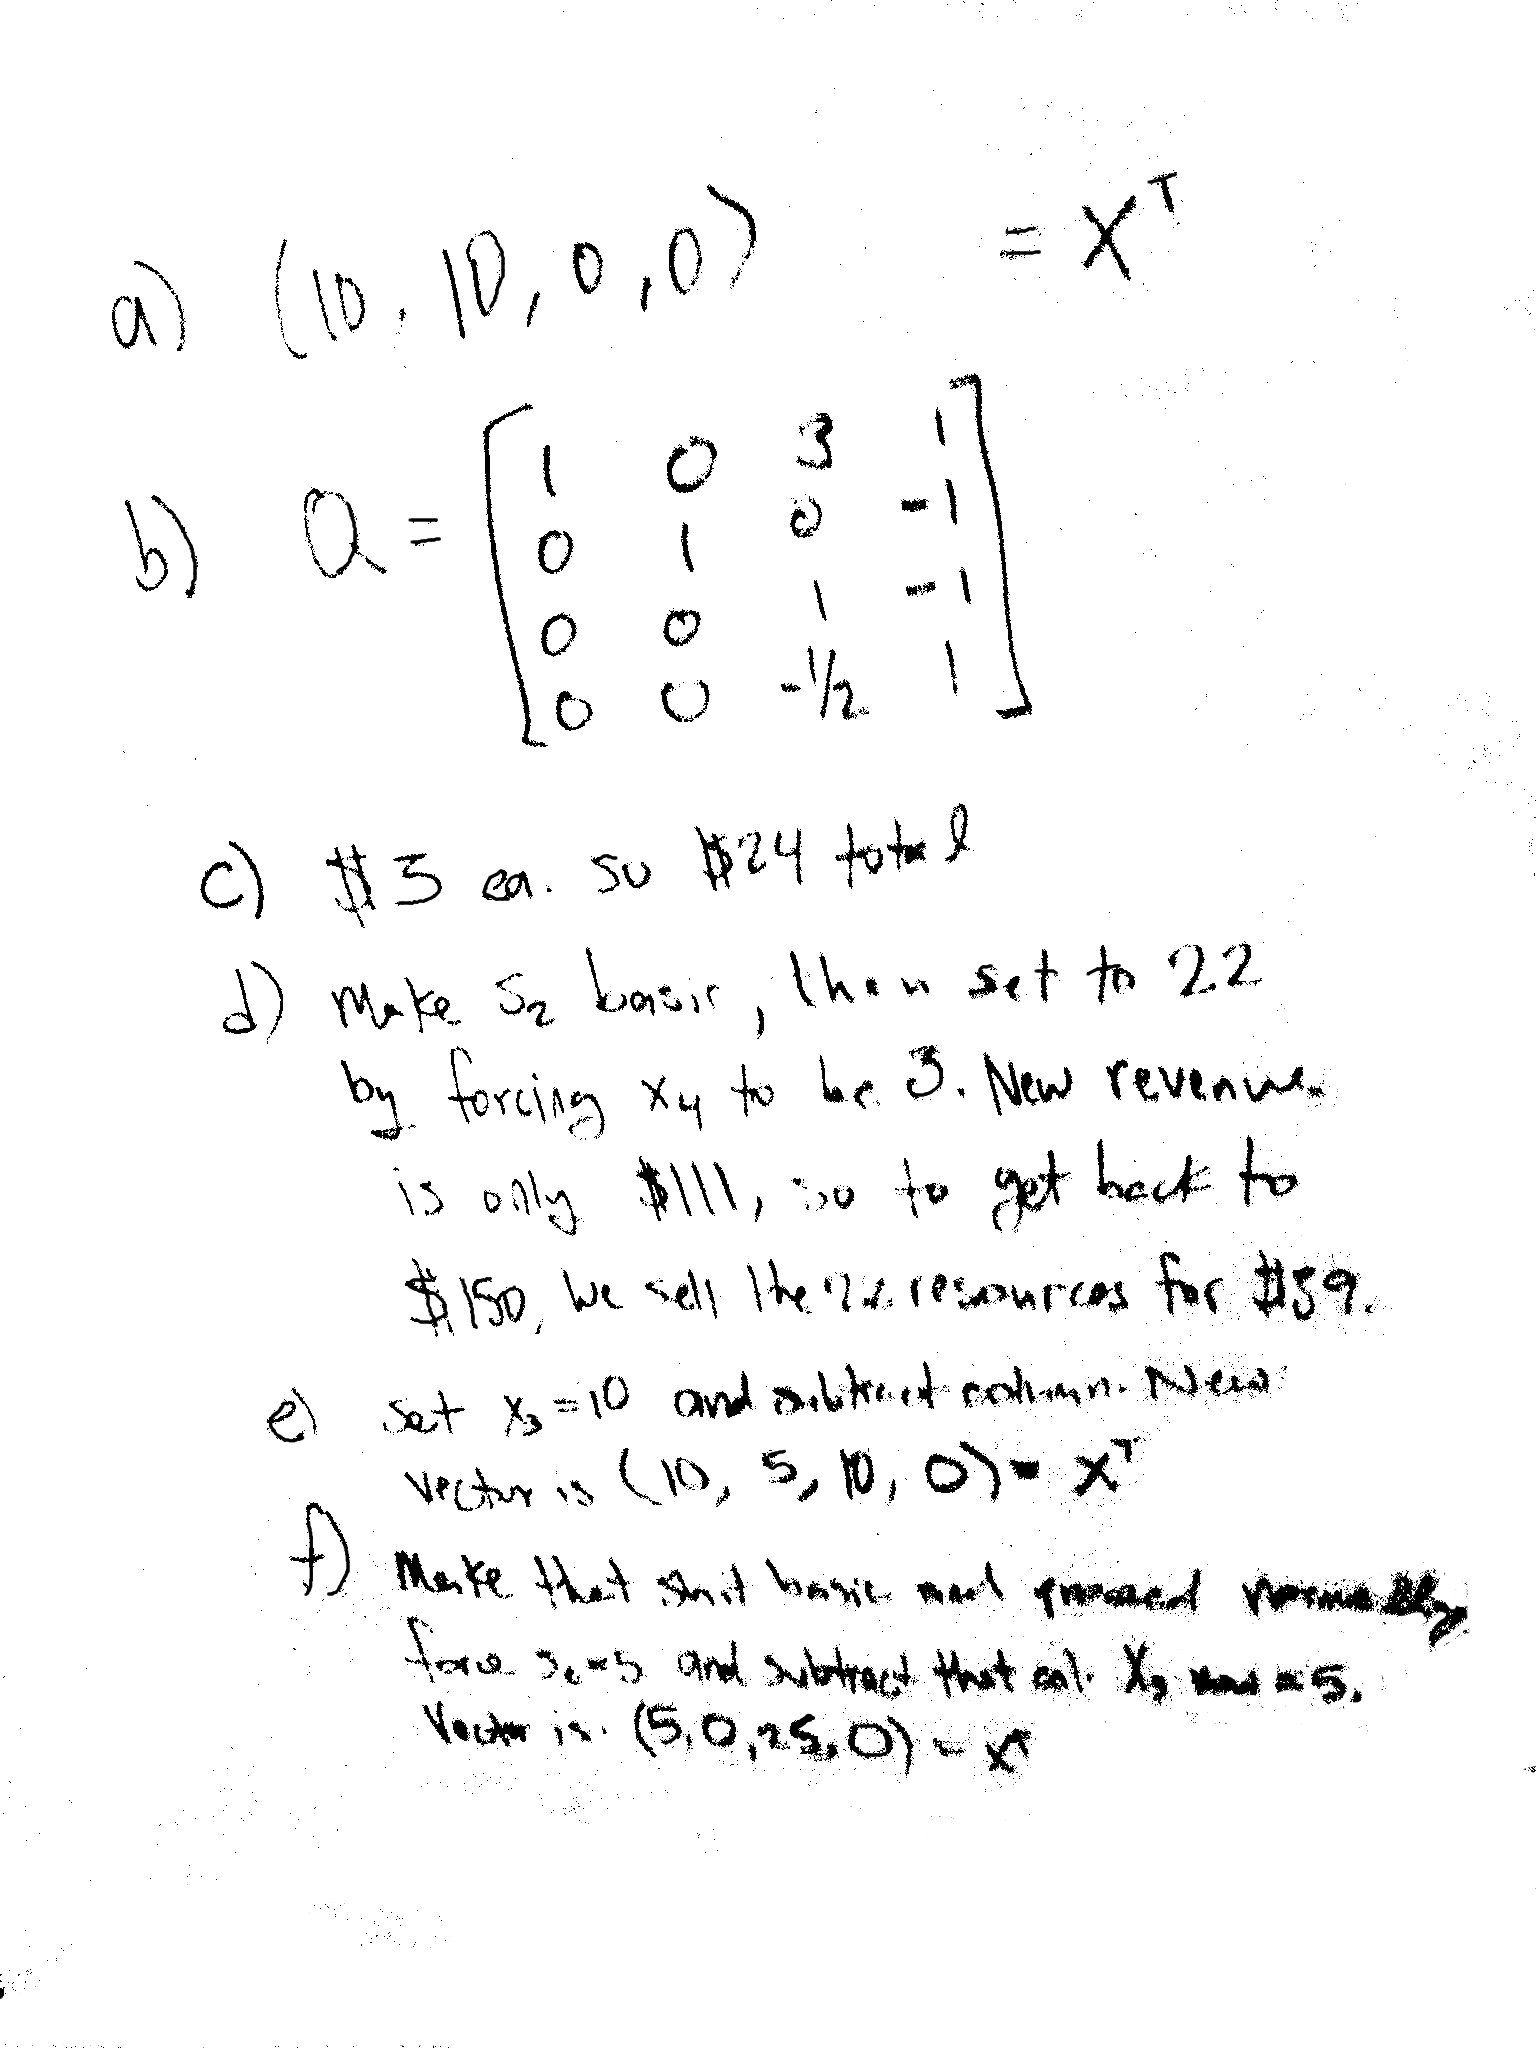 a) (10, 10, 0, 0) = X^T
b) Q = [
1 0 3 1
0 1 0 -1
0 0 1 -1
0 0 -1/2 1
]
c) $3 ea. so $24 total
d) Make S2 basic, then set to 22
by forcing X4 to be 3. New revenue
is only $111, so to get back to
$150, we sell the 22 resources for $39.
e) Set X3 = 10 and subtract column. New
vector is (10, 5, 10, 0) = X^T
f) Make that shit basic and proceed normally
force = 5 and subtract that col. = 5.
Vector is. (5, 0, 25, 0) = X^T